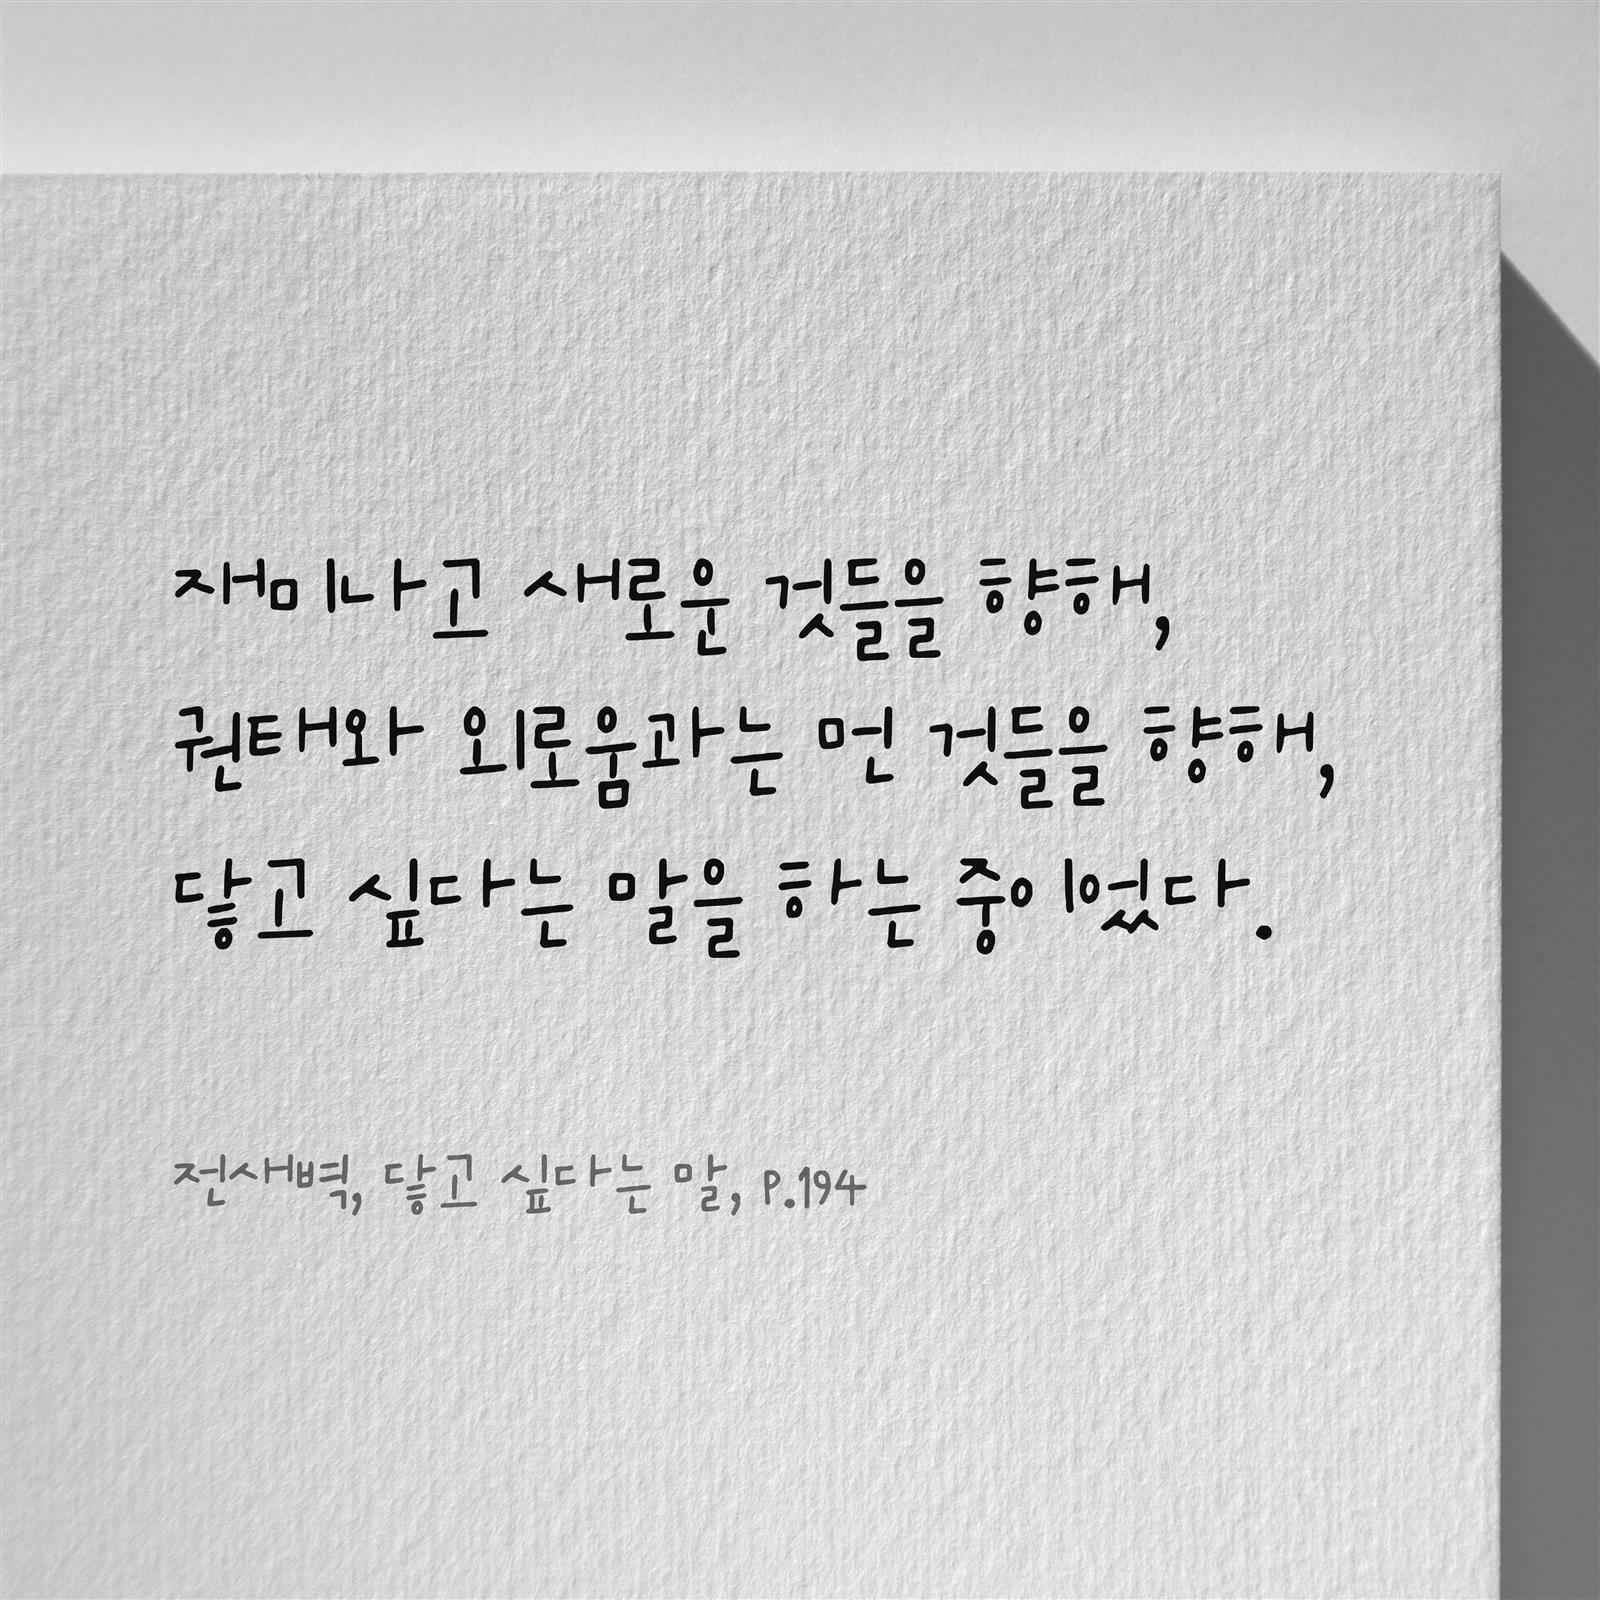 재미나고 새로운 것들을 향해,
권태와 외로움과는 먼 것들을 향해,
닿고 싶다는 말을 하는 중이었다.
전새벽, 닿고 싶다는 말, P.194